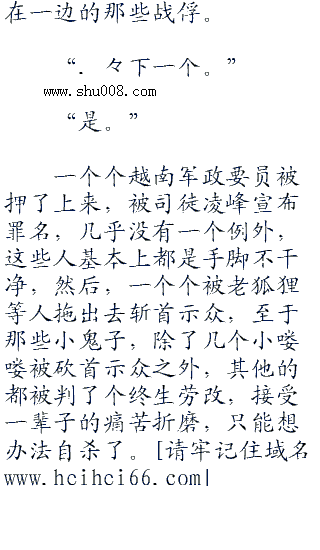 在一边的那些战俘。
“．々下一个。”
www.shu008.com
“是。”
一个个越南军政要员被
押了上来，被司徒凌峰宣布
罪名，几乎没有一个例外，
这些人基本上都是手脚不干
净，然后，一个个被老狐狸
等人拖出去斩首示众，至于
那些小鬼子，除了几个小喽
喽被砍首示众之外，其他的
都被判了个终生劳改，接受
一辈子的痛苦折磨，只能想
办法自杀了。[请牢记住域名
www.hcihci66.com|